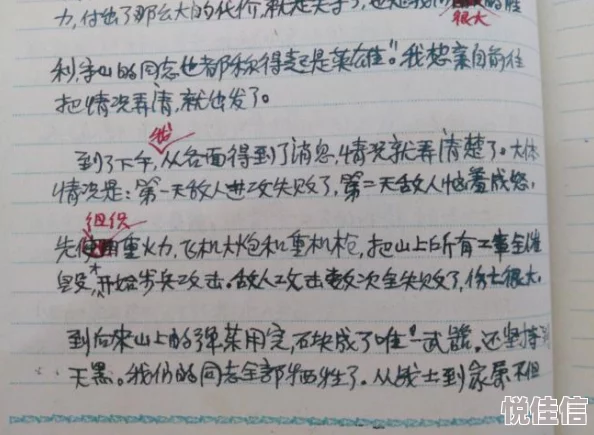 力,付出了那么大的代价,就是失守了,也是我们的胜
很大
利,守山的同志也都称得起是英雄"。我想亲自前往
把情况弄清,就出发了。
到了下午,从各面得到了消息,情况就弄清楚了。大体
情况是:第一天敌人进攻失败了,第二天敌人恼羞成怒,
组织
先使用重火力,飞机大炮和重机枪,把山上所有工事全催
毁,开始步兵攻击。敌人攻击数次全失败了,伤亡很大,
到后来山上的弹药用完,石块成了唯一武器,还坚持到
天黑。我们的同志全部牺牲了。从战士到家属不但
悦佳信